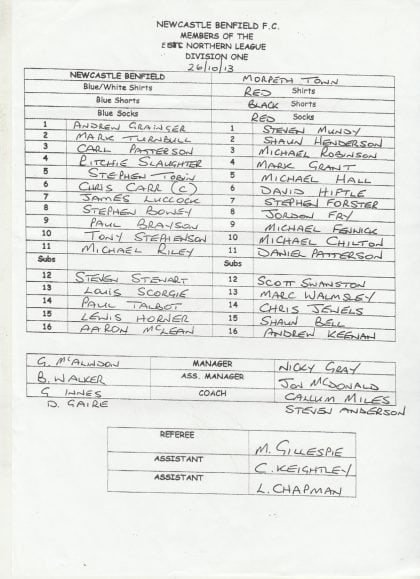 NEWCASTLE BENFIELD F.C.
MEMBERS OF THE
NORTHERN LEAGUE
DIVISION ONE
26/10/13
NEWCASTLE BENFIELD MORPETH TOWN
Blue/White Shirts RED Shirts
Blue Shorts BLACK Shorts
Blue Socks RED Socks
1 ANDREW GRAINGER 1 STEVEN MUNDY
2 MARK TURNBULL 2 SHAUN HENDERSON
3 CARL PATTERSON 3 MICHAEL ROBINSON
4 RITCHIE SLAUGHTER 4 MARK GRANT
5 STEPHEN TOBIN 5 MICHAEL HALL
6 CHRIS CARR (C) 6 DAVID HIPTLE
7 JAMES LUCCOCK 7 STEPHEN FORSTER
8 STEPHEN BOWEY 8 JORDON FRY
9 PAUL BRAYSON 9 MICHAEL FENNICK
10 TONY STEPHENSON 10 MICHAEL CHILTON
11 MICHAEL RILEY 11 DANIEL PATTERSON
Subs Subs
12 STEVEN STEWART 12 SCOTT SWANSTON
13 LOUIS SCORGIE 13 MARC WALMSLEY
14 PAUL TALBOT 14 CHRIS JEWELS
15 LEWIS HORNER 15 SHAUN BELL
16 AARON MCLEAN 16 ANDREW KEENAN
G. MCALINDON MANAGER NICKY GRAY
B. WALKER ASS. MANAGER JON MCDONALD
G INNES COACH CALLUM MILES
D. GAIRE STEVEN ANDERSON
REFEREE M. GILLESPIE
ASSISTANT C. KEIGHTLEY
ASSISTANT L. CHAPMAN